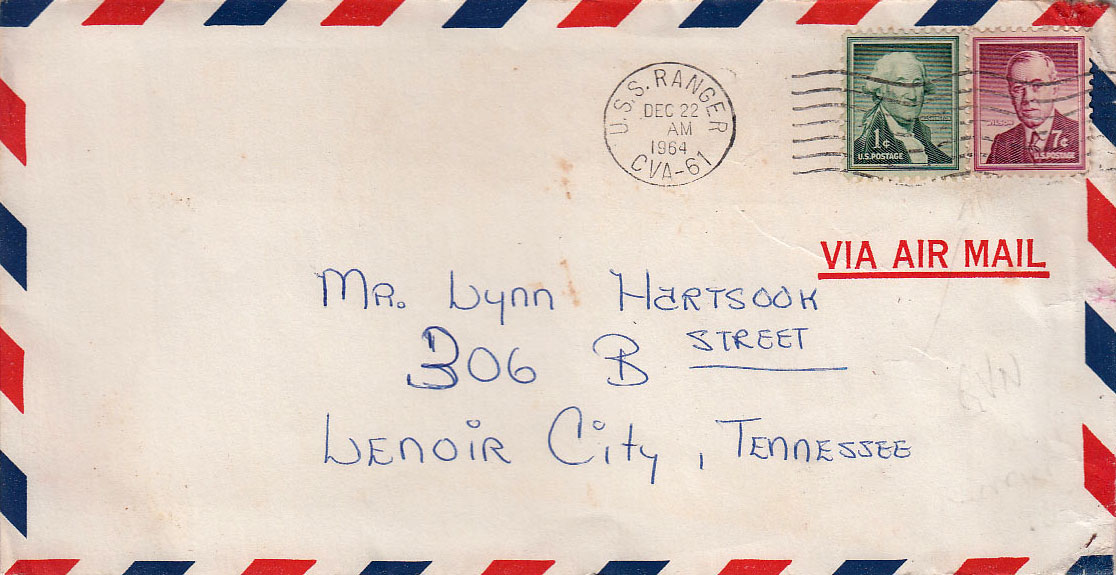 U.S.S. RANGER
DEC 22
AM
1964
CVA-61
1¢
U.S. POSTAGE
7¢
U.S. POSTAGE
VIA AIR MAIL
Mr. Lynn Hartsook
306 B STREET
Lenoir City, Tennessee